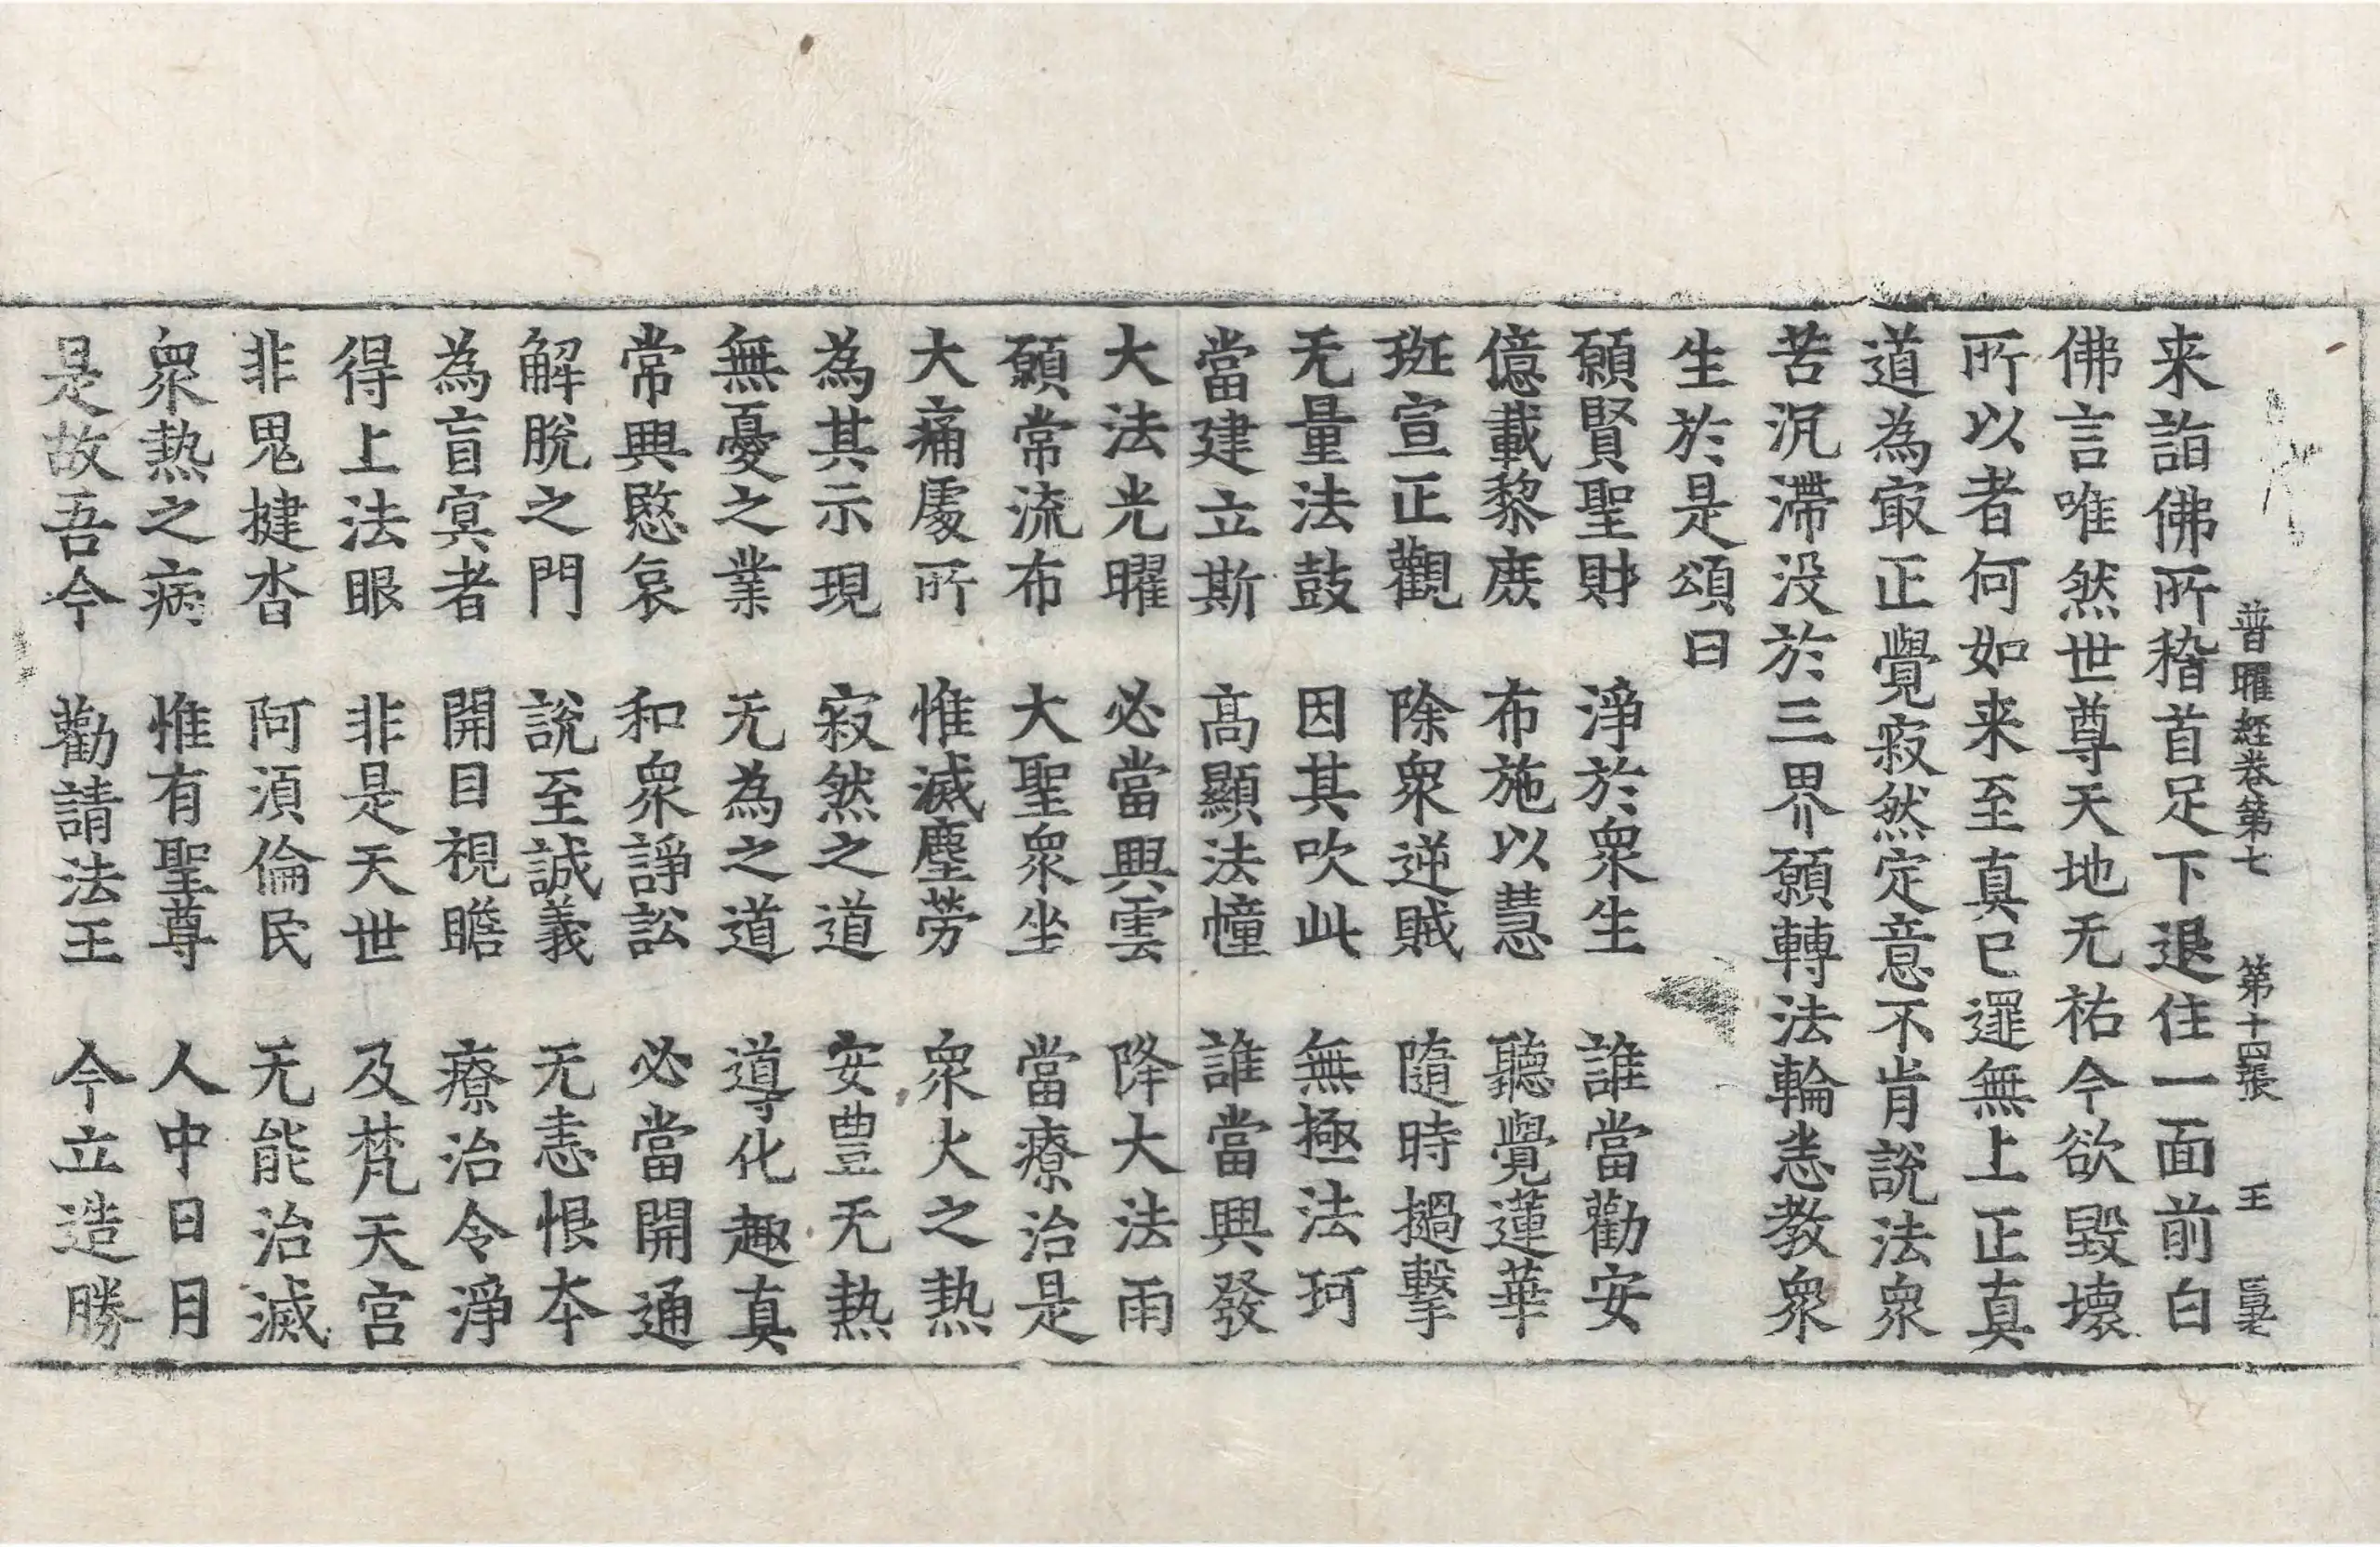 普曜經卷第七　第十四張　王
来詣佛所稽首足下退住一面前白
佛言唯然世尊天地无祐今欲毀壞
所以者何如来至真已逻無上正真
道為㝡正覺寂然定意不肯說法衆
苦沉滯没於三界願轉法輪恚教衆
生於是頌曰
願賢聖財　淨於衆生　誰當勸安
億載黎庶　布施以慧　聽覺蓮華
班宣正觀　除衆逆賊　隨時撾擊
无量法鼓　因其吹此　無極法珂
當建立斯　高顯法幢　誰當興發
大法光曜　必當興雲　降大法雨
願常流布　大聖衆坐　當療治是
大痛處所　惟滅塵勞　衆火之熱
為其示現　寂然之道　安豊无熱
無憂之業　无為之道　導化趣真
常興愍哀　和衆諍訟　必當開通
解脫之門　說至誠義　无恚恨本
為盲冥者　開目視瞻　療治令淨
得上法眼　非是天世　及梵天宮
非鬼揵沓　阿須倫民　无能治滅
衆熱之病　惟有聖尊　人中日月
是故吾今　勸請法王　今立造勝